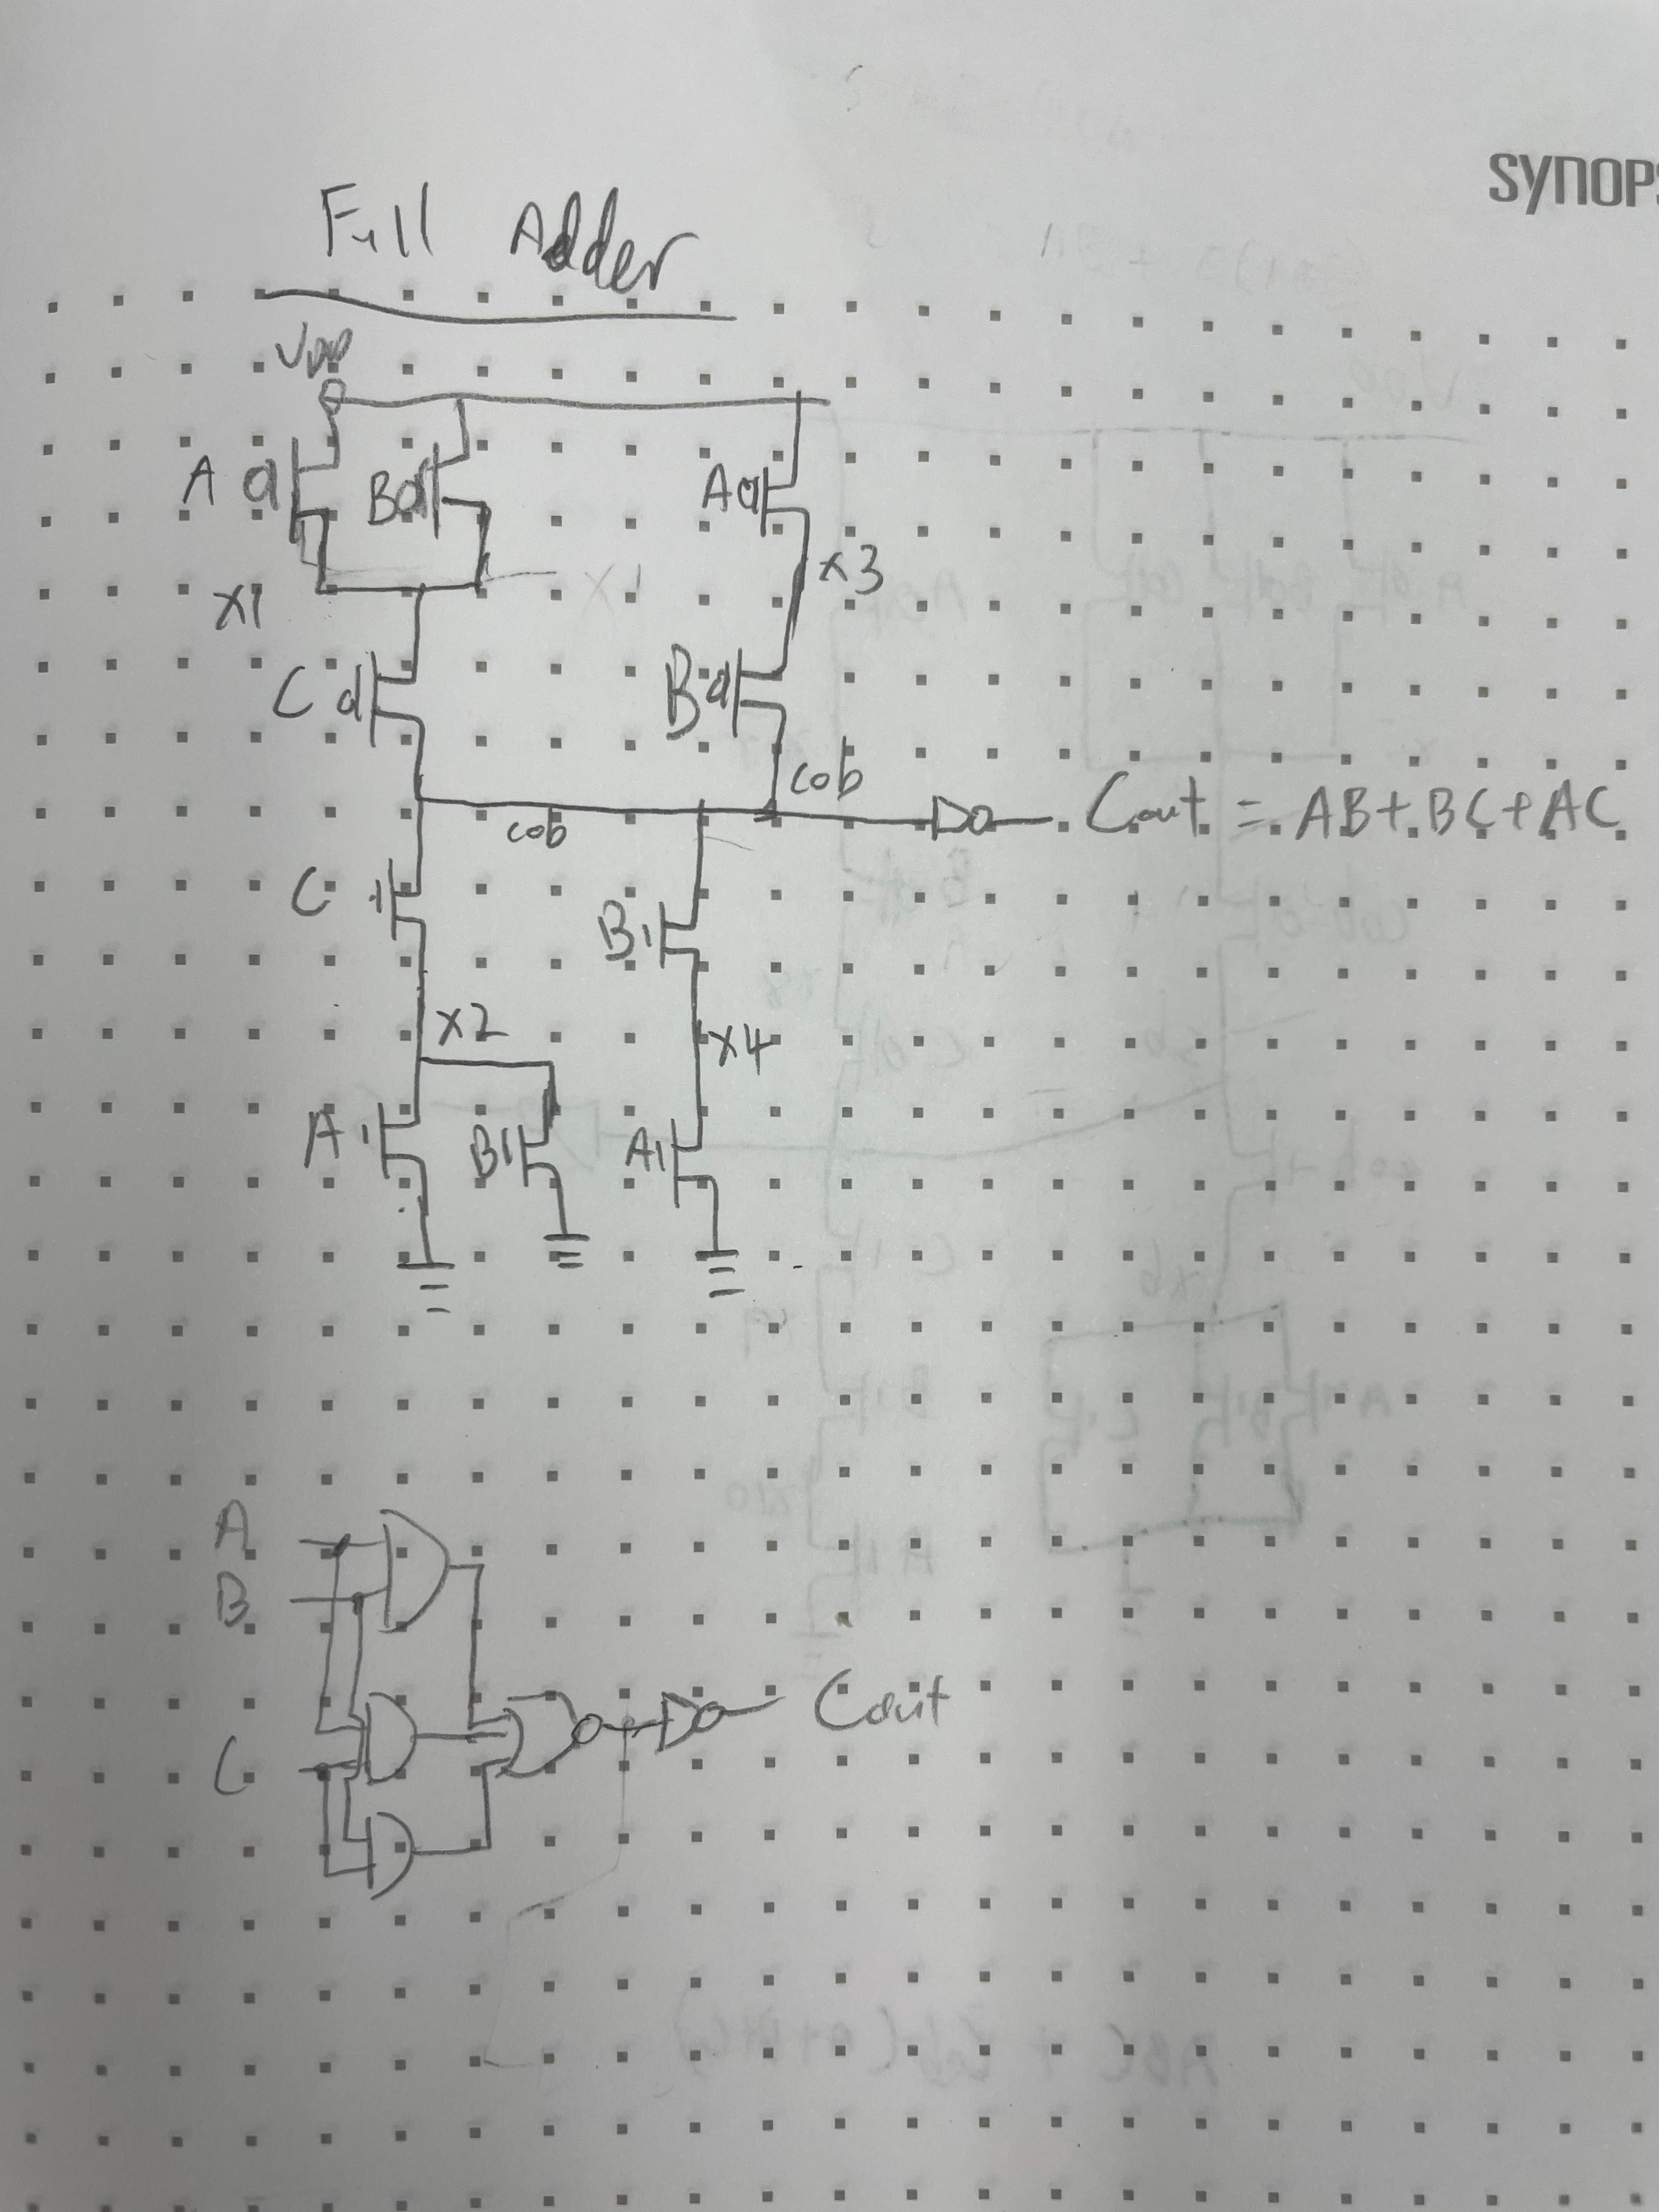 SYNOPS
Full Adder
VDD
A B A
x3
x1
C B
cob
cob Cout = AB + BC + AC
C B
x2 x4
A B A
A
B
C Cout